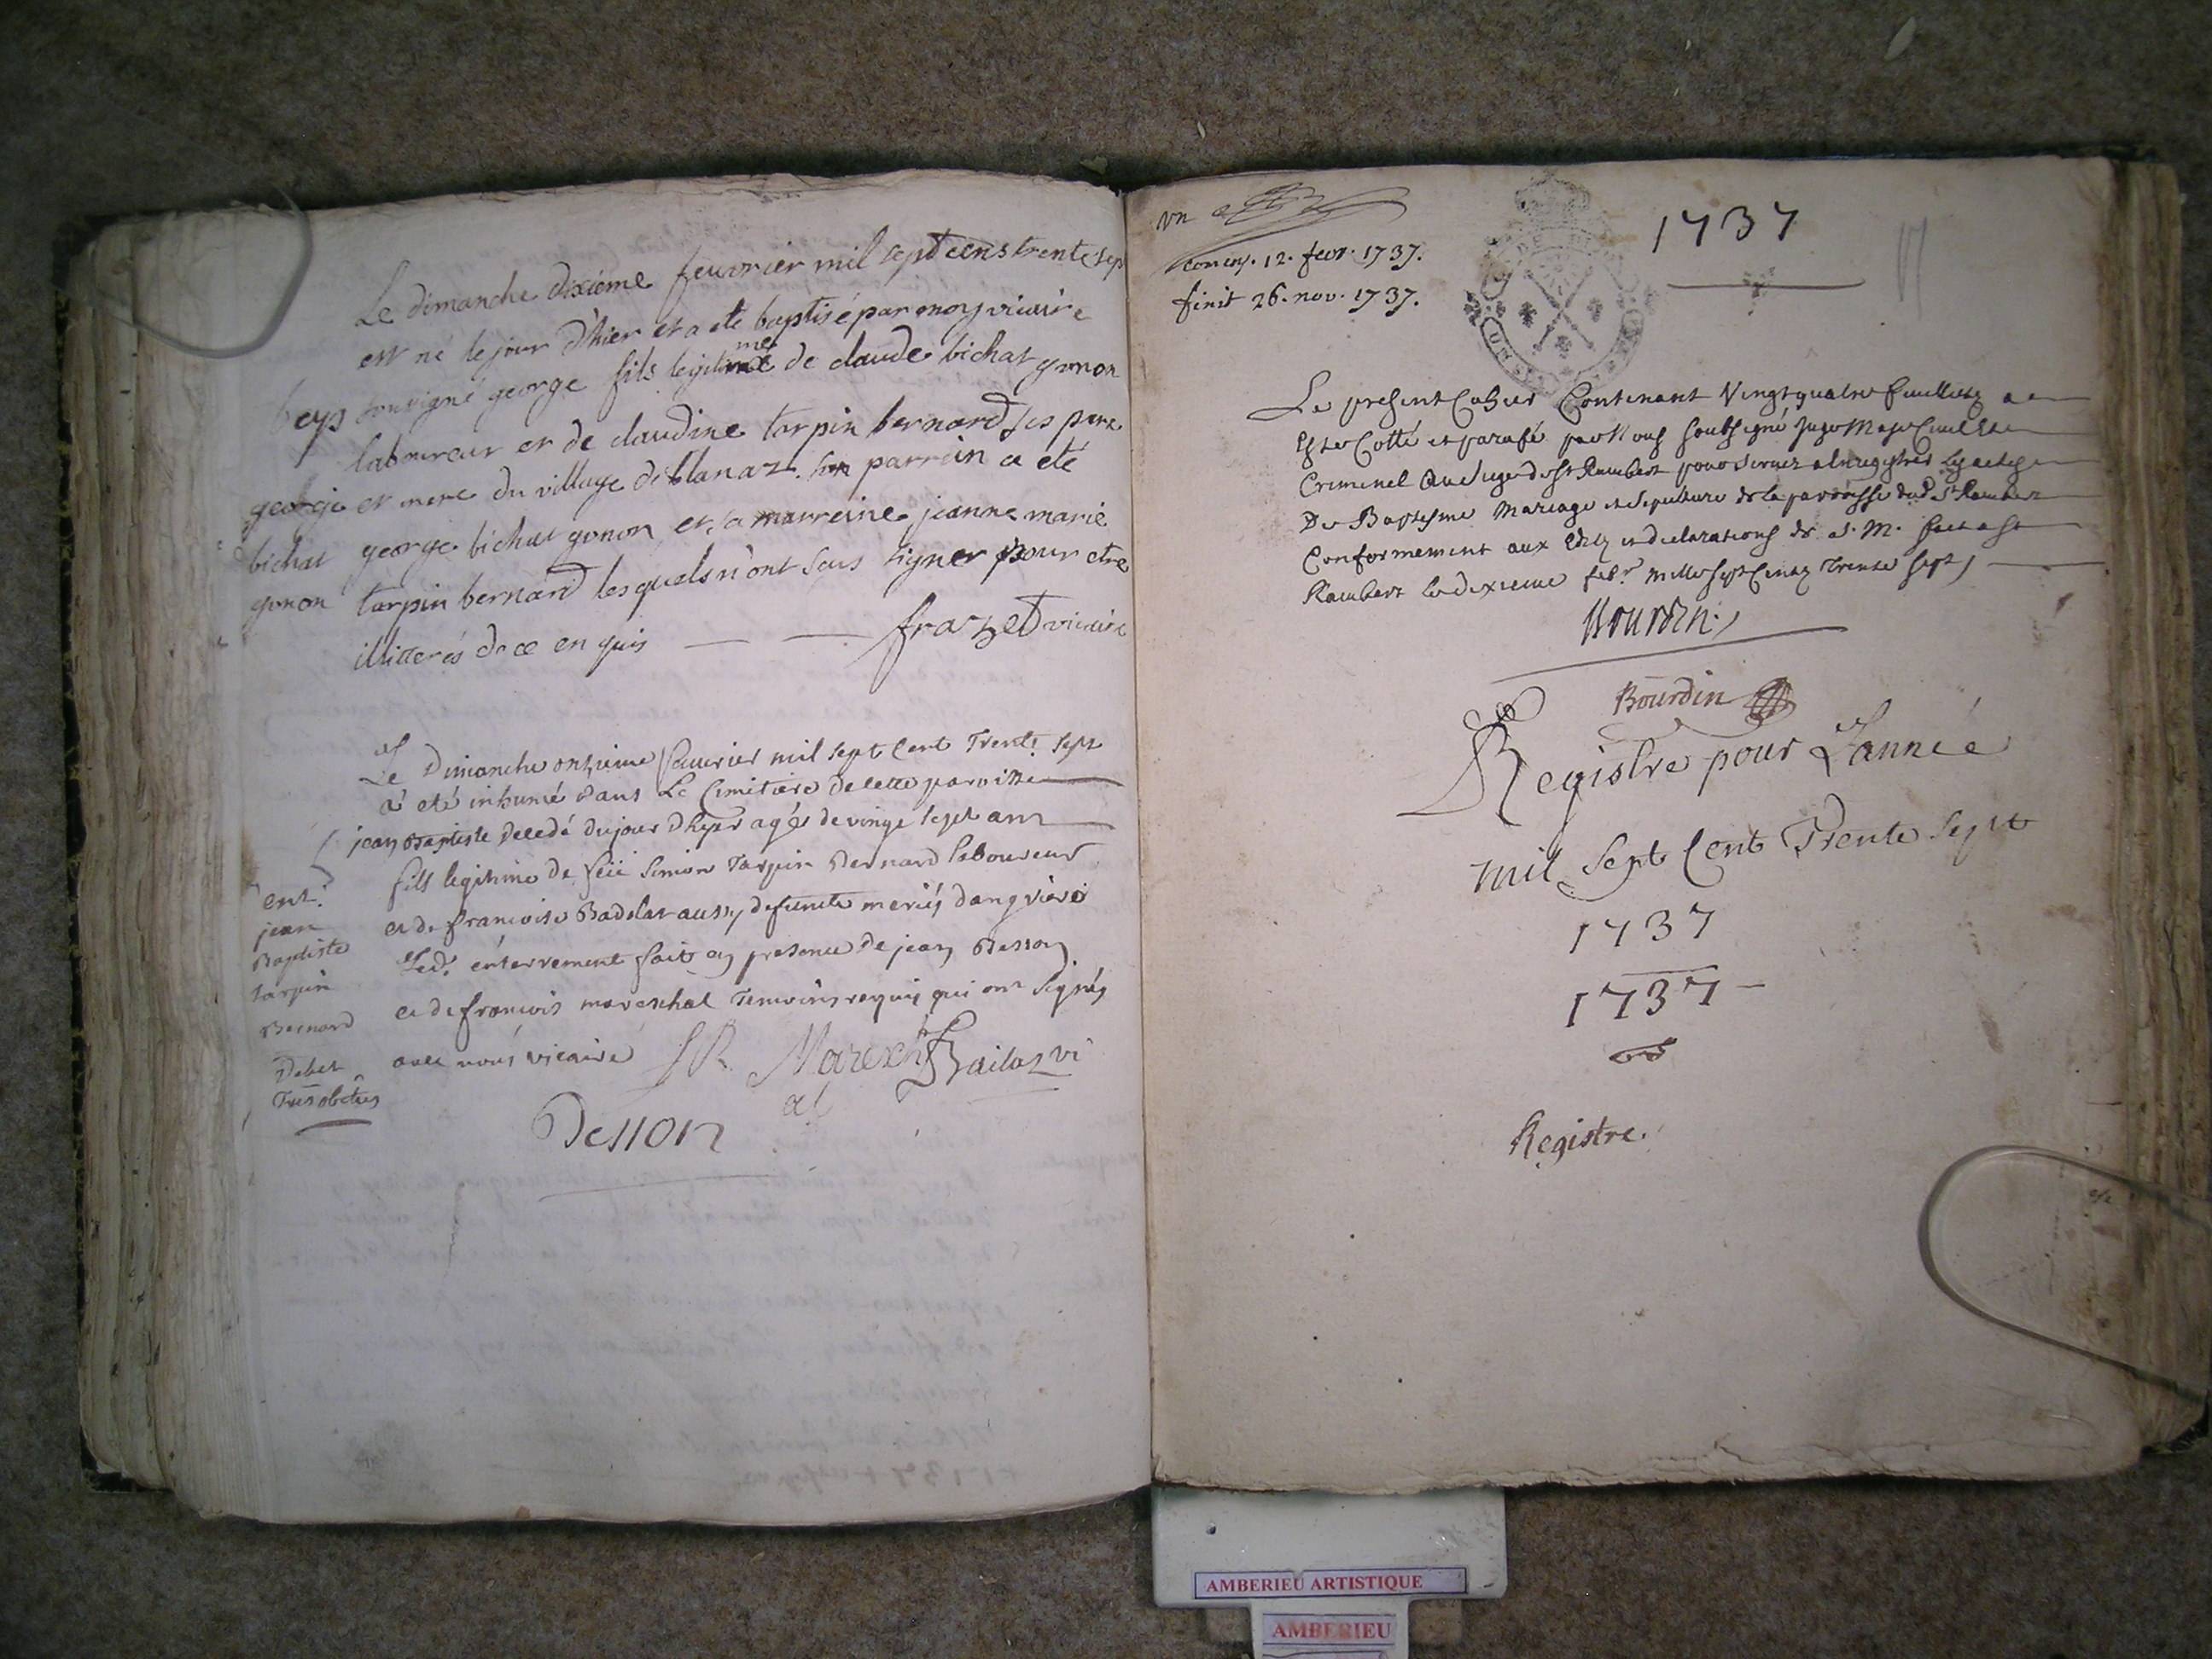 Le dimanche dixiéme feuvrier mil sept cens trente sep
est né le jour d'hier et a eté baptisé par moy vicaire
sousigné george fils legitime de claude bichat gonon
laboureur et de claudine tarpin bernard ses pere
et mere du village de blanaz. son parrain a eté
george bichat gonon et sa marreine jeanne marie
tarpin bernard lesquels n'ont scus signer pour etre
illitterés de ce en quis frazet vicaire
beys
george
bichat
gonon
Le Dimanche onzieme feuvrier mil sept Cent Trente sept
a eté inhumé dans Le Cimetiere de cette paroisse
jean Baptiste decedé du jour d'hyer agés de vingt sept ans
fils legitime de feu simon Tarpin Bernard laboureur
et de francoise Badelat aussy defuncte meriés d'angriere
Led. enterrement fait en presence de jean Besson
et de francois mareschal Temoins requis qui ont signés
avec nous vicaire
ent.
jean
Baptiste
tarpin
Bernard
Debet
FR Marexch
al
Besson
vn
comen. 12. fevr. 1737.
finit 26. nov. 1737.
1737
Le present Cahier Contenant Vingt quatre feuilletz a
Este Cotté et parafé par Nous soubsigné Juge Maje Civil Et
Criminel au siege de St Rambert pour servir a Enregistrer les actes
De Baptesme Mariage et sepulture de la parroisse dud. St Rambert
Conformement aux Edits et declarations de S. M. fait a St
Rambert le dixieme febr. mille sept Centz Trente sept
Bourdin
Bourdin
Registre pour L'année
mil sept Cent Trente sept
1737
1737
Registre.
AMBERIEU ARTISTIQUE
AMBERIEU